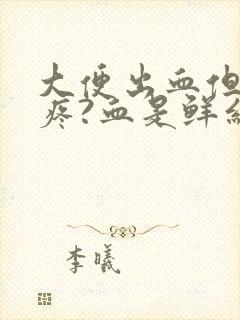 大便出血但
疼?血是鲜
李曦